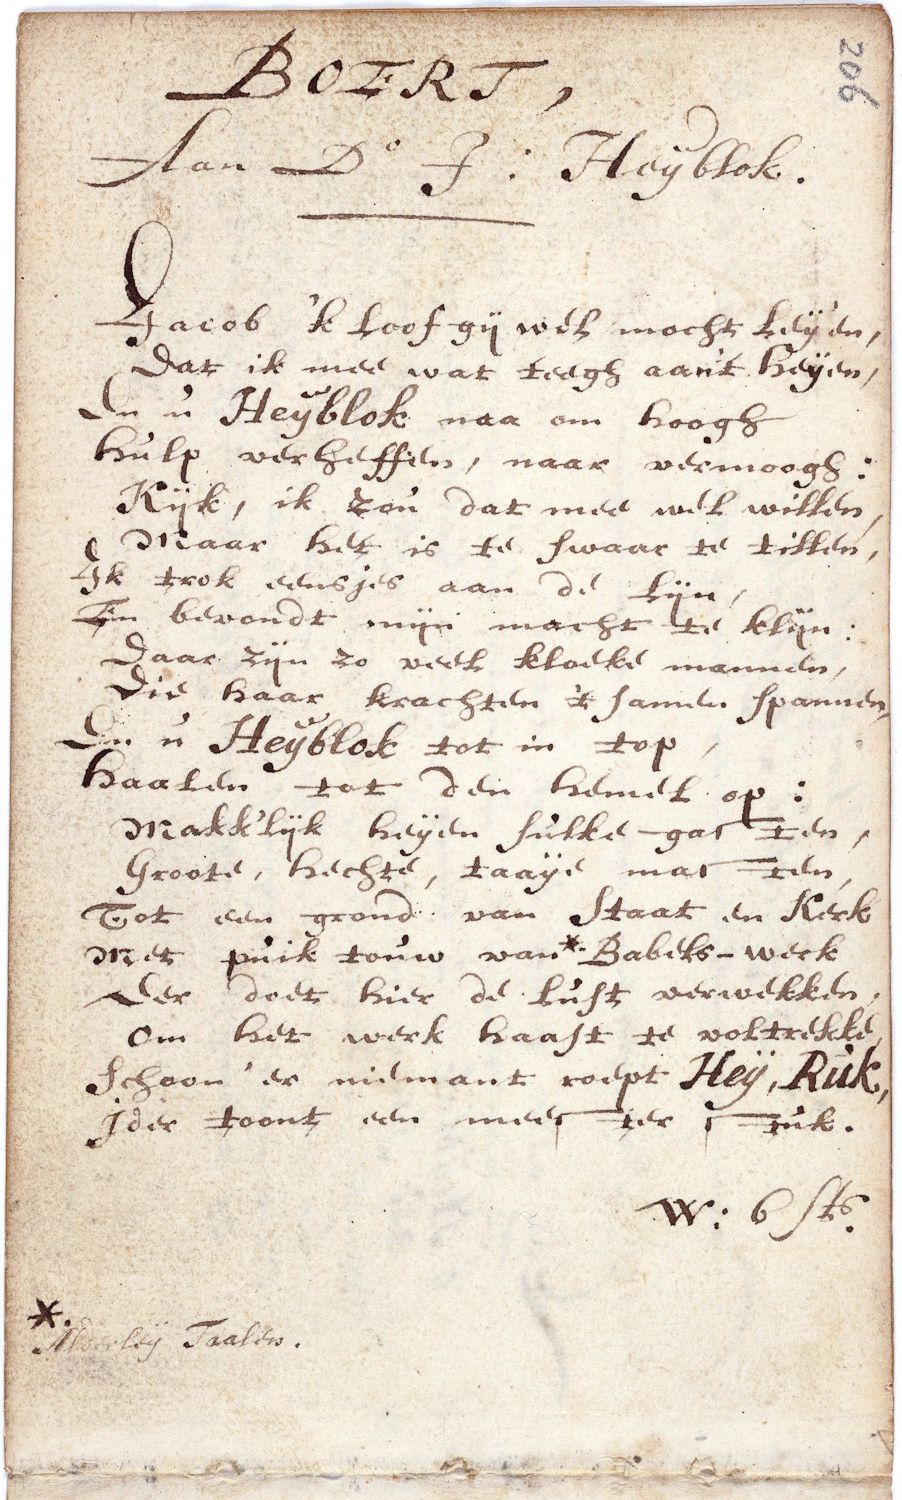 206
BOERT,
Aan Do J: Heyblok.
Jacob 'k loof gij wel mocht leyen,
Dat ik mee wat teegh aan't heyen,
En u Heyblok naa om hoogh
hulp verheffen, naar vermoogh:
Kijk, ik zou dat mee wel willen,
Maar het is te swaar te tillen,
Ik trok eensjes aan de lijn,
En bevondt mijn macht te klijn:
Daar zijn zo veel kloeke mannen,
Die haar krachten 't samen spannen,
En u Heyblok tot in top,
haalen tot den hemel op:
Makk'lijk heyen sulke gasten,
Groote, hechte, taaye masten,
Tot een grond van Staat en Kerk
Met puik touw van *. Babels-werk
Der doet hier de lust verwekken,
Om het werk haast te voltrekke,
Schoon 'er niemant roept Hey, Ruk,
jder toont een meester stuk.
W: 6 sts.
*. Allerley Taalen.